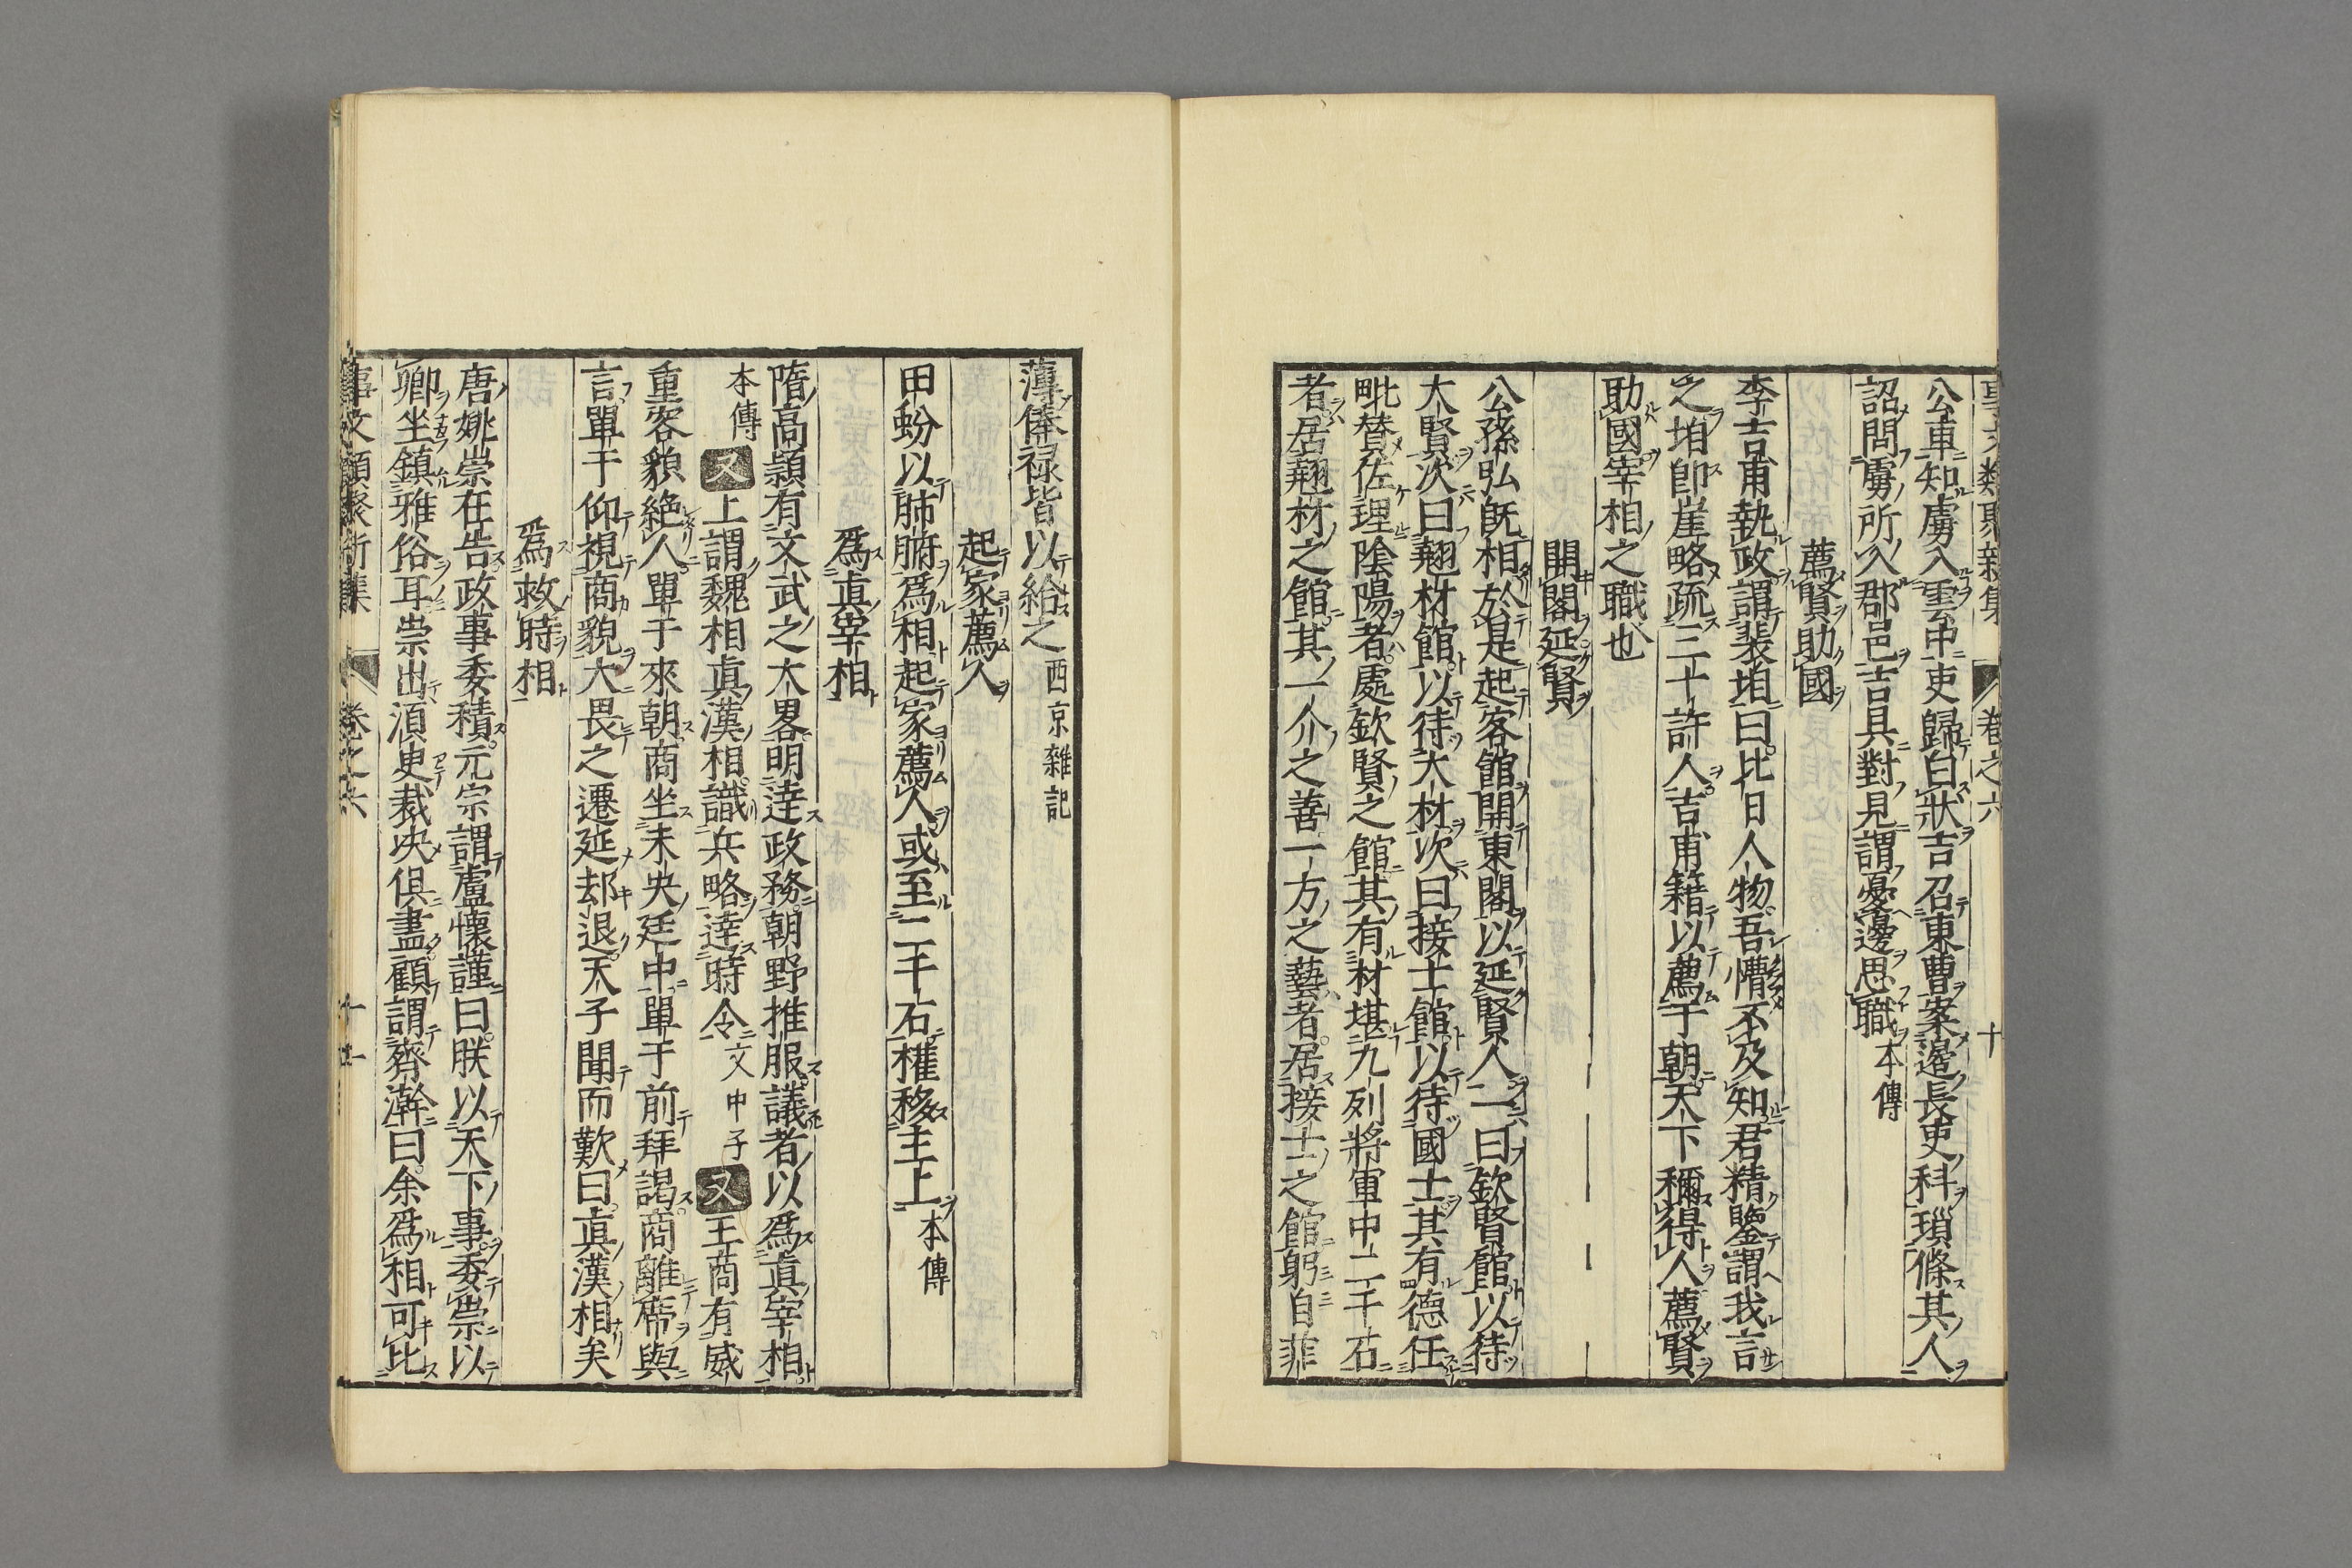 事文類聚新集 卷之六 十
公車知虜入雲中吏歸白狀吉召東曹案邊長吏科瑣條其人
詔問虜所入郡邑吉具對見謂憂邊思職本傳
薦賢助國
李吉甫執政謂裴垍曰比日人物吾懵不及知君精鑒謂我言
之垍即崖略疏三十許人吉甫籍以薦于朝天下稱得人薦賢
助國宰相之職也
開閣延賢
公孫弘既相於是起客館開東閣以延賢人一曰欽賢館以待
大賢次曰翹材館以待大材次曰接士館以待國士其有德任
毗賛佐理陰陽者處欽賢之館其有材堪九列將軍中二千石
者居翹材之館其一介之善一方之藝者居接士之館躬自菲
薄俸禄皆以給之西京雜記
起家薦人
田蚡以肺腑爲相起家薦人或至二千石權移主上本傳
爲真宰相
隋高熲有文武之大畧明達政務朝野推服議者以爲真宰相
本傳又上謂魏相真漢相識兵略達時令文中子又王商有威
重容貌絶人單于來朝商坐未央廷中單于前拜謁商離席與
言單于仰視商貌大畏之遷延却退天子聞而歎曰真漢相矣
爲救時相
唐姚崇在告政事委積元宗謂盧懷謹曰朕以天下事委崇以
卿坐鎮雅俗耳崇出湏㬰裁决俱盡顧謂齊澣曰余爲相可比
事文類聚新集 卷之六 十一